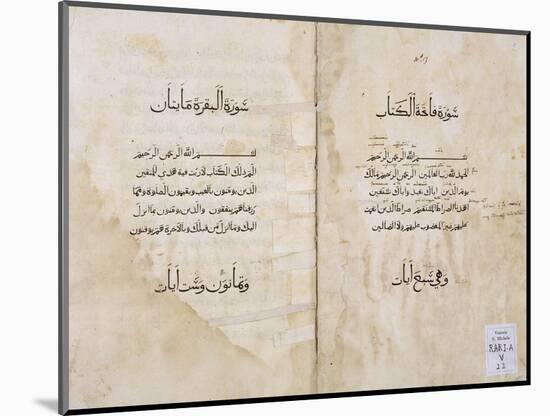 سورة فاتحة الكتاب
بسم الله الرحمن الرحيم
الحمد لله رب العالمين الرحمن الرحيم مالك
يوم الدين اياك نعبد واياك نستعين
اهدنا الصراط المستقيم صراط الذين انعمت
عليهم غير المغضوب عليهم ولا الضالين
وهي سبع أيات
سورة البقرة مايتان
بسم الله الرحمن الرحيم
الم ذلك الكتاب لا ريب فيه هدى للمتقين
الذين يومنون بالغيب ويقيمون الصلوة ومما
رزقناهم ينفقون والذين يومنون بما انزل
اليك وما انزل من قبلك وبالاخرة هم يوقنون
وثمانون وست أيات
Venezia
S. Michele
RARI-A
V
22